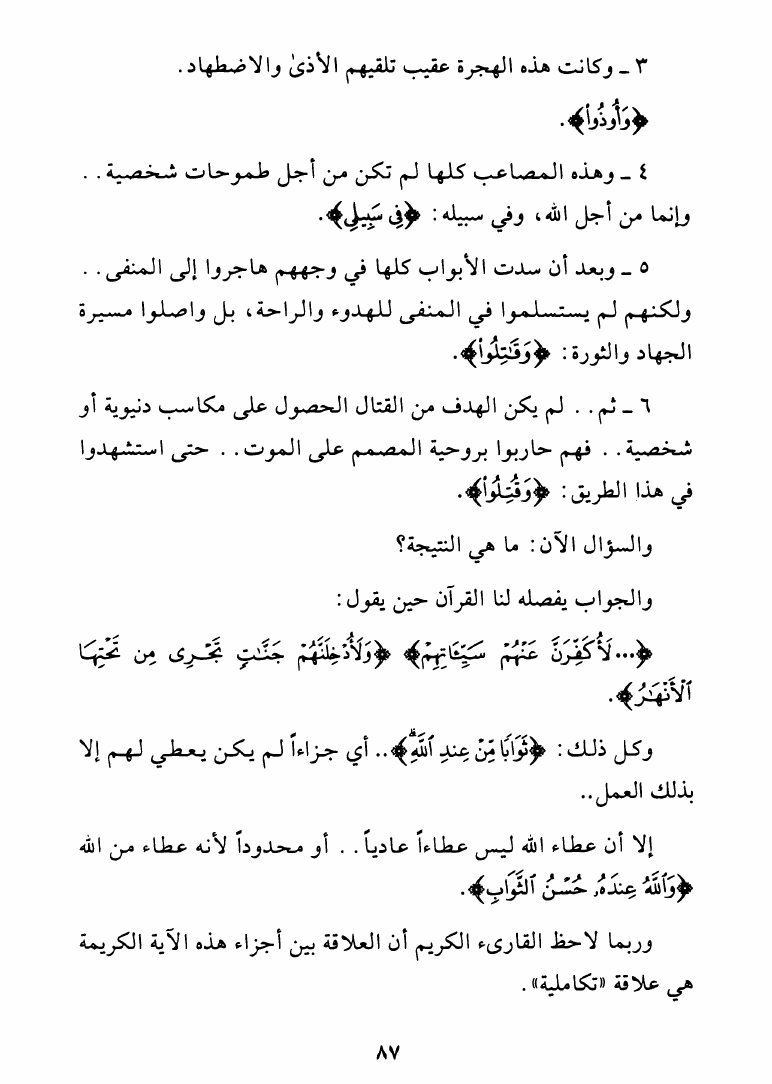 ٣ ـ وكانت هذه الهجرة عقيب تلقيهم الأذىٰ والاضطهاد.
﴿وَأُوذُواْ﴾.
٤ ـ وهذه المصاعب كلها لم تكن من أجل طموحات شخصية . .
وإنما من أجل الله، وفي سبيله: ﴿فِي سَبِيلِي﴾.
٥ ـ وبعد أن سدت الأبواب كلها في وجههم هاجروا إلى المنفى . .
ولكنهم لم يستسلموا في المنفى للهدوء والراحة، بل واصلوا مسيرة
الجهاد والثورة: ﴿وَقَٰتَلُواْ﴾.
٦ ـ ثم . . لم يكن الهدف من القتال الحصول على مكاسب دنيوية أو
شخصية . . فهم حاربوا بروحية المصمم على الموت . . حتى استشهدوا
في هذا الطريق: ﴿وَقُتِلُواْ﴾.
والسؤال الآن: ما هي النتيجة؟
والجواب يفصله لنا القرآن حين يقول:
﴿...لَأُكَفِّرَنَّ عَنْهُمْ سَيِّـَٔاتِهِمْ﴾ ﴿وَلَأُدْخِلَنَّهُمْ جَنَّٰتٍ تَجْرِى مِن تَحْتِهَا
ٱلْأَنْهَٰرُ﴾.
وكل ذلك: ﴿ثَوَابًا مِّنْ عِندِ ٱللَّهِۗ﴾.. أي جزاءاً لم يكن يعطي لهم إلا
بذلك العمل..
إلا أن عطاء الله ليس عطاءاً عادياً . . أو محدوداً لأنه عطاء من الله
﴿وَٱللَّهُ عِندَهُۥ حُسْنُ ٱلثَّوَابِ﴾.
وربما لاحظ القارىء الكريم أن العلاقة بين أجزاء هذه الآية الكريمة
هي علاقة «تكاملية».
٨٧